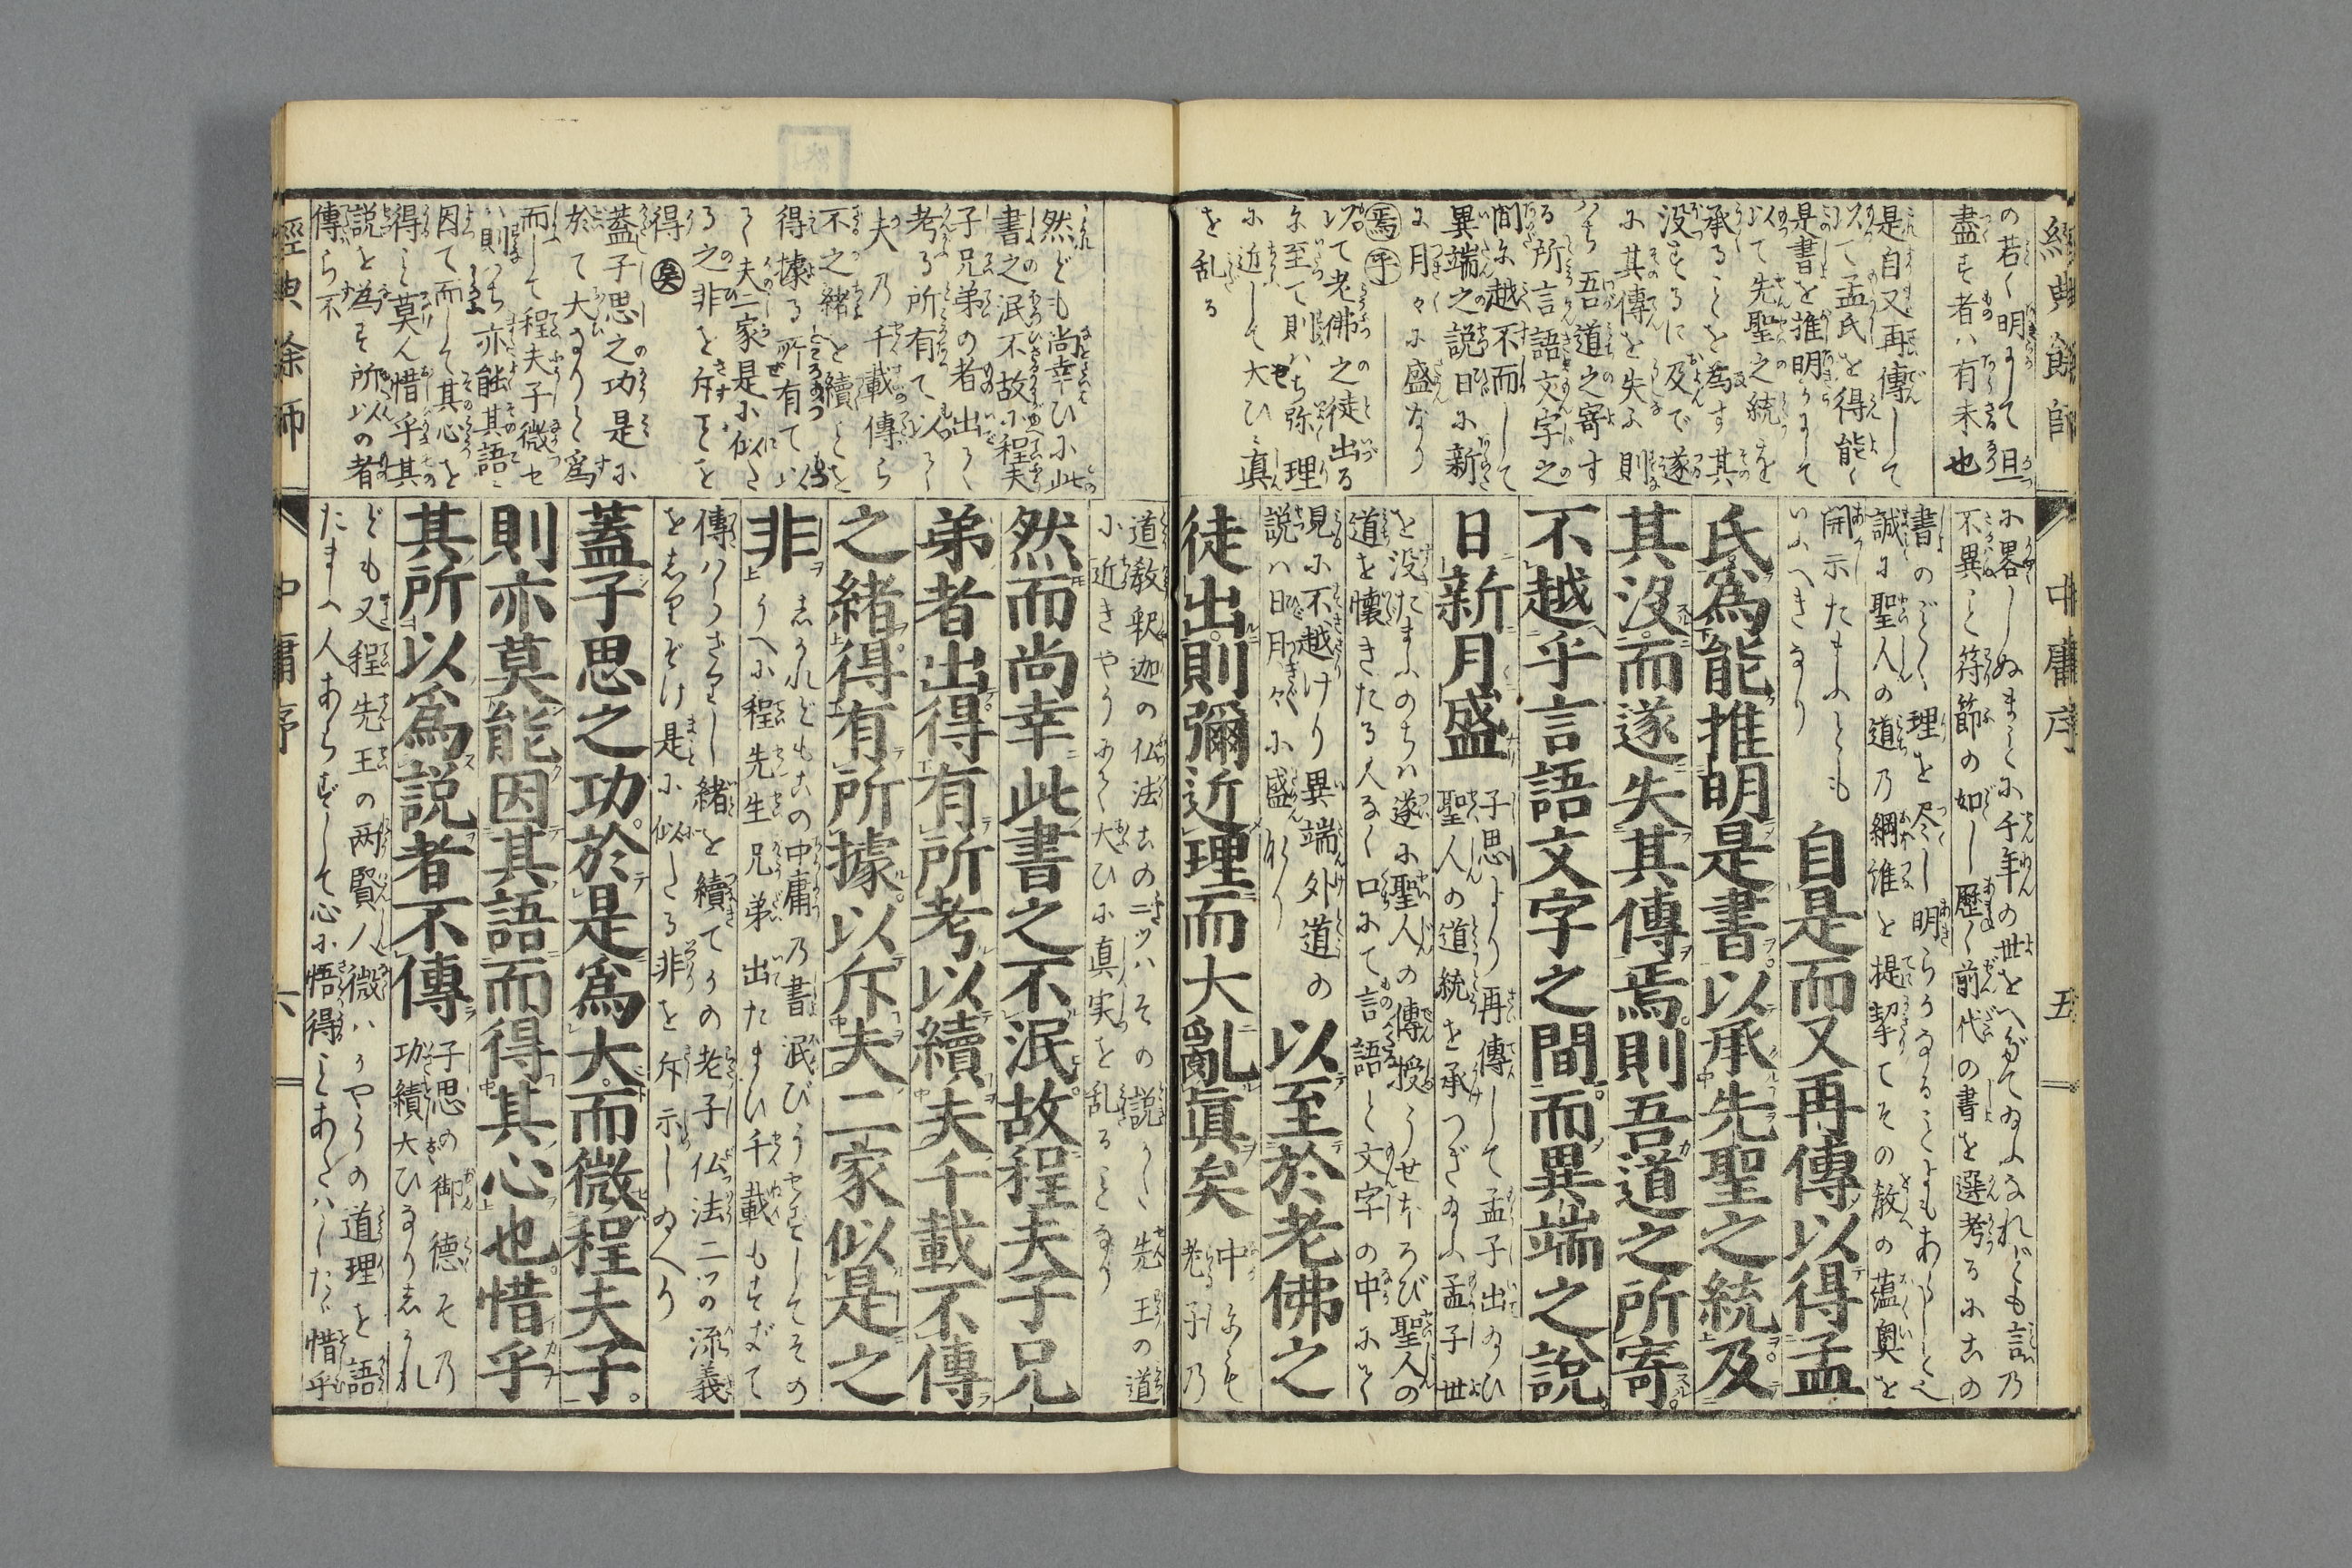 經典餘師
中庸序
五
の若く明にして且
盡す者ハ有未也
是自又再傳して
以て孟氏を得能く
是書を推明にして
以て先聖之統を
承ることを為す其
没するに及で遂
に其傳を失ふ則
ハち吾道之寄す
る所言語文字之
間に越不而して
異端之説日に新
に月々に盛なり
焉乎
以て老佛之徒出る
に至て則ハち弥理
に近して大ひに真
を乱る
に畧しぬまことに千年の世をへだてゐふなれども言乃
不異こと符節の如し歴く前代の書を選考るに古の
書のごとく理を尽し明らかなることよもあらじとぞ
誠に聖人の道乃綱維と提挈てその教の蘊奧を
開示たもふとも
いふへきなり
自是而又再傳以得孟
氏爲能推明是書以承先聖之統及
其沒而遂失其傳焉則吾道之所寄
不越乎言語文字之間而異端之說
日新月盛
子思より再傳して孟子出ゐひ
聖人の道統を承つぎゐふ孟子世
を没たまふのちハ遂に聖人の傳授うせほろび聖人の
道を懐きたる人なく口にて言語と文字の中にて
見に不越けり異端外道の
説ハ日月々に盛なり
以至於老佛之
徒出則彌近理而大亂眞矣
中にも
老子乃
道教釈迦の仏法古の二ツハその説かた先王の道
に近きやうにて大ひに真実を乱ることなり
然ども尚幸ひに此
書之泯不故に程夫
子兄弟の者出て
考る所有て以て
夫乃千載傳ら
不之緒を續ことを
得據る所有て以
て夫二家是に似た
る之非を斥ことを
得矣
蓋子思之功是に
於て大なりと爲
而して程夫子微せ
ハ則ち亦能其語に
因て而して其心を
得こと莫ん惜乎其
説を為す所以の者
傳ら不
然而尚幸此書之不泯故程夫子兄
弟者出得有所考以續夫千載不傳
之緒得有所據以斥夫二家似是之
非
しかれども古の中庸乃書泯びうせずしてその
うへに程先生兄弟出たまひ千載もすだて
傳ハらざりし緒を續てかの老子仏法二ツの流義
をしりぞけ是に似たる非を斥示しゐへり
蓋子思之功於是爲大而微程夫子
則亦莫能因其語而得其心也惜乎
其所以爲說者不傳
子思の御德その
功績大ひなりしかれ
ども又程先王の両賢人微ハかやうの道理を語
たまへ人あらずして心に悟得ことあたハした惜乎
經典餘師
中庸序
六